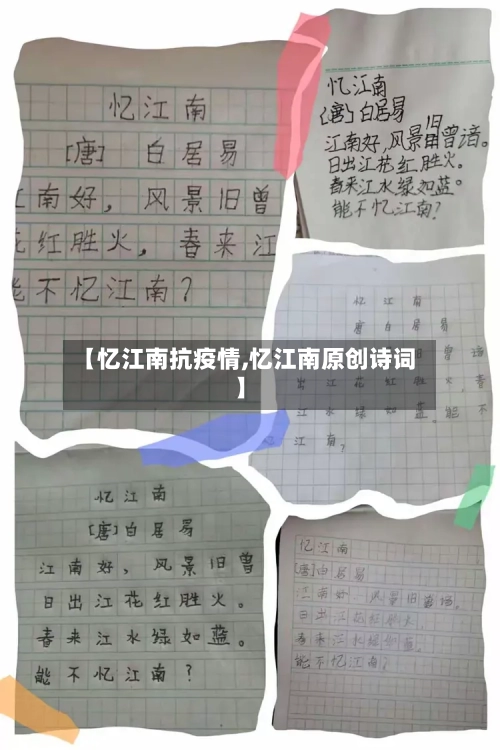 忆江南
[唐] 白居易
江南好，风景旧曾
花红胜火，春来江
能不忆江南？
忆江南
[唐]白居易
江南好,风景旧曾谙。
日出江花红胜火。
春来江水绿如蓝。
能不忆江南?
【忆江南抗疫情,忆江南原创诗词
】
忆江南
唐 白居易
曾谙
出江花红胜火 春
江水绿如蓝。能不
江南？
忆江南
[唐]白居易
江南好，风景旧曾
日出江花红胜火。
春来江水绿如蓝。
能不忆江南？
忆江南
[唐]白居易
江南好 风景旧曾谙。
日出江花红胜火
春来江水绿如蓝。
能不忆江南？